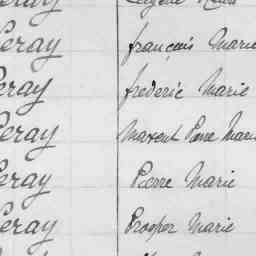 eray françois Marie
eray frederic Marie
eray Maxent Pierre Marie
eray Pierre Marie
eray Prosper Marie